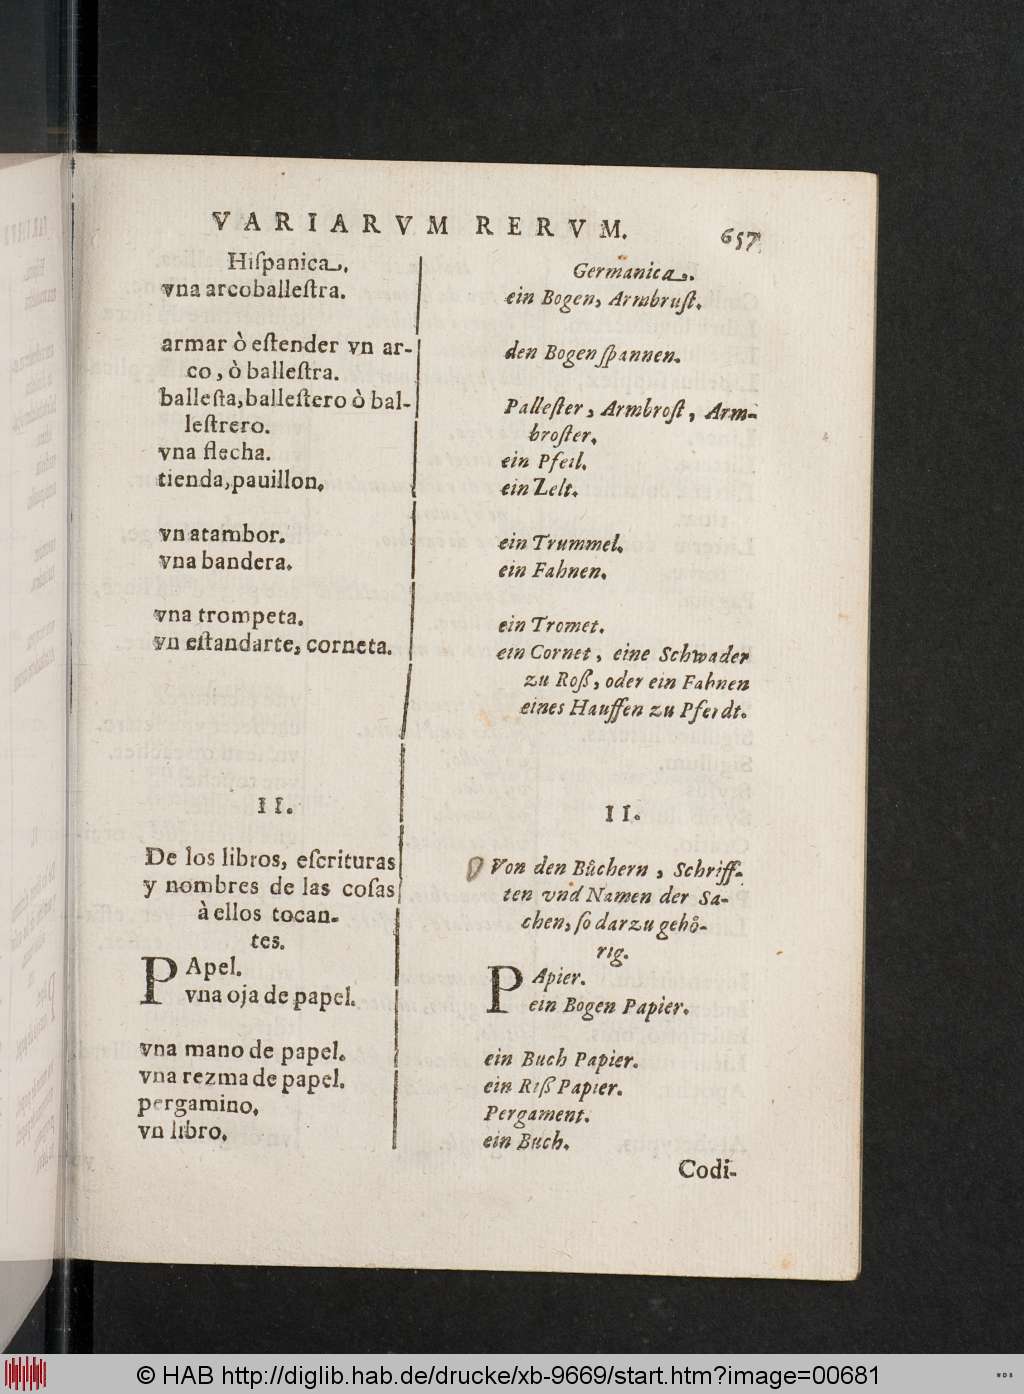 VARIARVM RERVM. 657
Hiſpanica.
vna arcoballeſtra.
armar ò eſtender vn ar-
co, ò balleſtra.
balleſta, balleſtero ò bal-
leſtrero.
vna flecha.
tienda, pauillon.
vn atambor.
vna bandera.
vna trompeta.
vn eſtandarte, corneta.
II.
De los libros, eſcrituras
y nombres de las coſas
à ellos tocan-
tes.
PApel.
vna oja de papel.
vna mano de papel.
vna rezma de papel.
pergamino.
vn libro.
Germanica.
ein Bogen, Armbruſt.
den Bogen ſpannen.
Palleſter, Armbroſt, Arm-
broſter.
ein Pfeil.
ein Zelt.
ein Trummel.
ein Fahnen.
ein Tromet.
ein Cornet, eine Schwader
zu Roß, oder ein Fahnen
eines Hauffen zu Pferdt.
II.
Von den Bůchern, Schriff-
ten vnd Namen der Sa-
chen, ſo darzu gehô-
rig.
PApier.
ein Bogen Papier.
ein Buch Papier.
ein Riß Papier.
Pergament.
ein Buch.
Codi-
© HAB http://diglib.hab.de/drucke/xb-9669/start.htm?image=00681